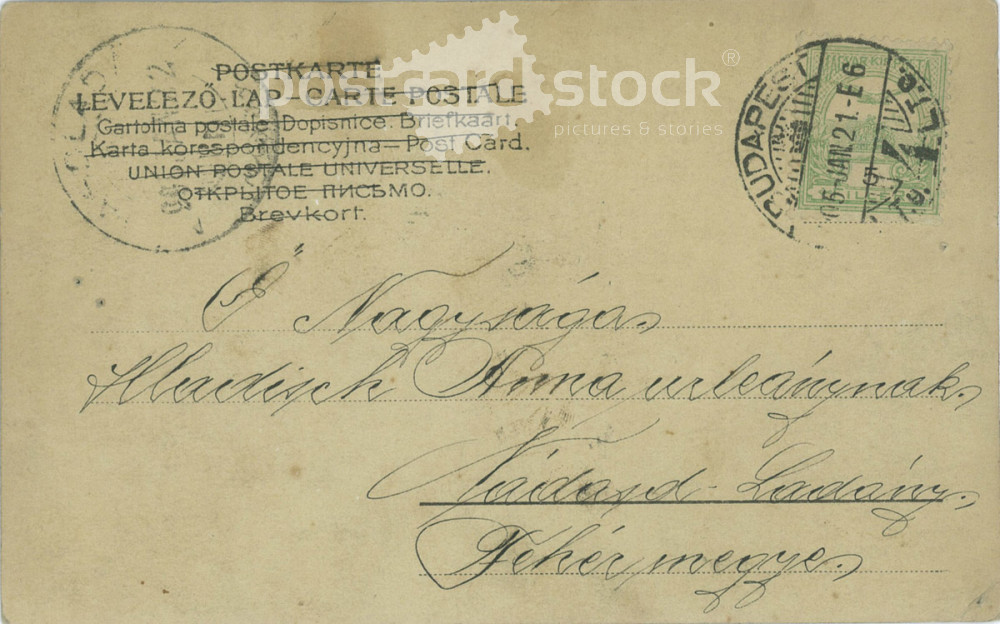 POSTKARTE
LEVELEZŐ-LAP - CARTE POSTALE
Cartolina postale. Dopisnice. Briefkaart.
Karta korespondencyjna — Post Card.
UNION POSTALE UNIVERSELLE.
ОТКРЫТОЕ ПИСЬМО.
Brevkort.
postcard stock®
pictures & stories
BUDAPEST
905 JAN 21. E 6
Ő Nagysága
Hladisch Anna urleánynak.
Nádasd-Ladány.
Fehér megye.